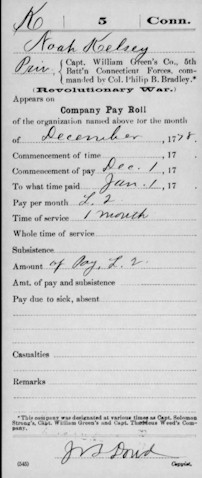 K | 5 | Conn.
Noah Kelsey
Priv., { Capt. William Green's Co., 5th
Batt'n Connecticut Forces, com-
manded by Col. Philip B. Bradley.*
(Revolutionary War.)
Appears on
Company Pay Roll
of the organization named above for the month
of December, 1778.
Commencement of time, 17
Commencement of pay Dec. 1, 17
To what time paid Jan. 1, 17
Pay per month £. 2
Time of service 1 month
Whole time of service
Subsistence
Amount of Pay, £. 2.
Amt. of pay and subsistence
Pay due to sick, absent
Casualties
Remarks
*This company was designated at various times as Capt. Solomon
Strong's, Capt. William Green's and Capt. Thaddeus Weed's Com-
pany.
(545) Copyist.